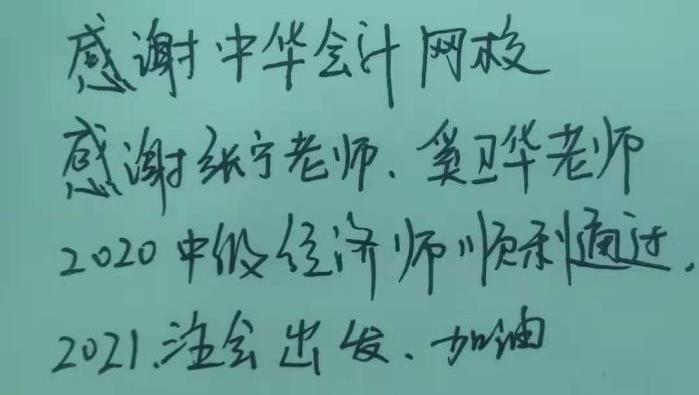 感谢中华会计网校
感谢张宁老师、奚卫华老师
2020中级经济师顺利通过,
2021.注会出发、加油